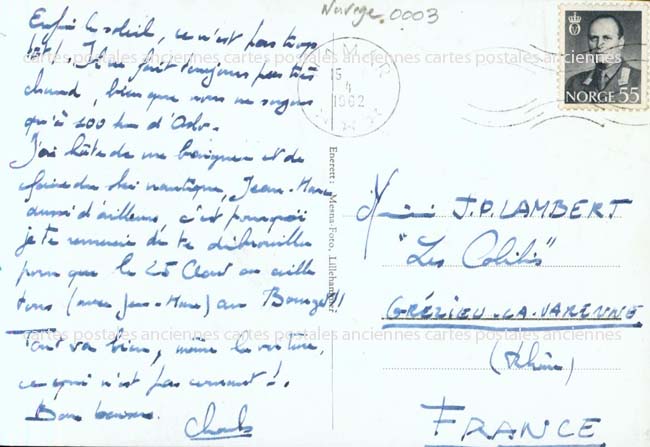 Norvège. 0003
Enfin le soleil, ce n'est pas trop
tôt! Il ne fait toujours pas très
chaud, bien que nous ne soyons
qu'à 200 km d'Oslo.
J'ai hâte de me baigner et de
faire du ski nautique, Jean-Marc
aussi d'ailleurs, c'est pourquoi
je te remercie de te débrouiller
pour que le 25 Août on aille
tous (avec Jean-Marc) au Bourget!!
Tout va bien, même la voiture,
ce qui n'est pas
Bons baisers.
Charles
Enerett: Mesna-Foto, Lillehammer
HAMAR
15
4
1962
NORGE 55
J.P. LAMBERT
"Les Colibris"
GRÉZIEU-LA-VARENNE
(Rhône)
FRANCE
cartes postales anciennes cartes postales anciennes cartes postales anciennes cartes postales anciennes
cartes postales anciennes cartes postales anciennes cartes postales anciennes cartes postales anciennes
cartes postales anciennes cartes postales anciennes cartes postales anciennes cartes postales anciennes